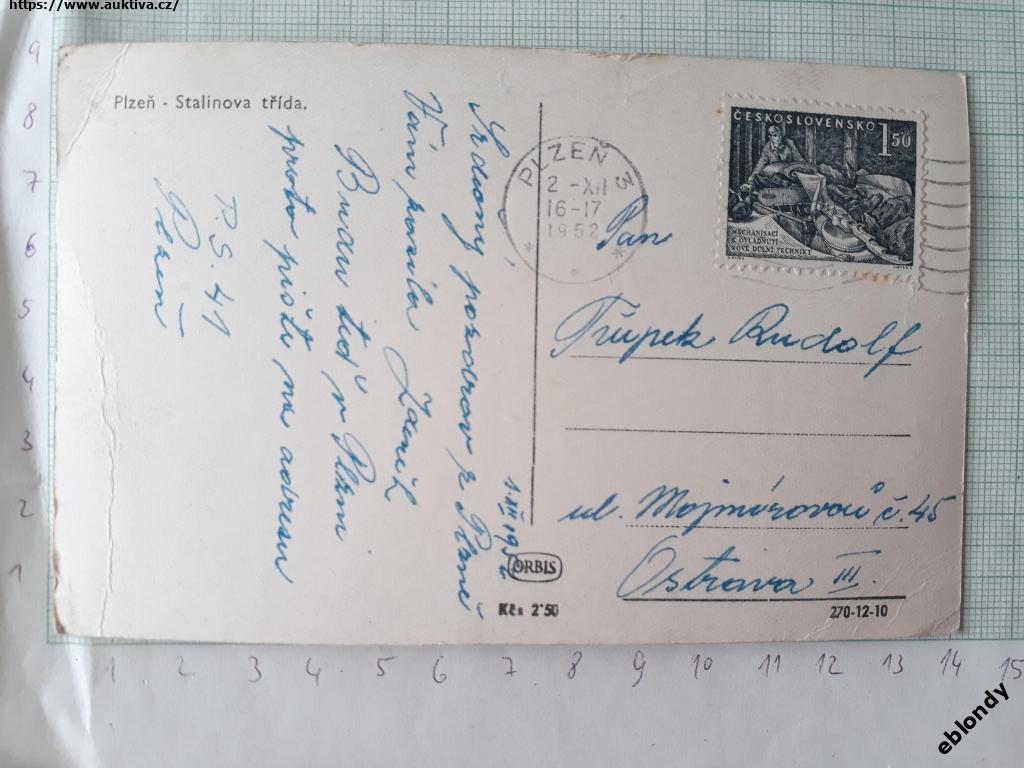 https://www.auktiva.cz/
Plzeň - Stalinova třída.
1.XII 1952
Srdečný pozdrav z Plzně
Vám posílá
Budu teď v Plzni
proto pište na adresu
P.S. 41
Plzeň
PLZEŇ 3
2 -XII
16-17
1952
ČESKOSLOVENSKO
1 50
MECHANISACÍ
K OVLÁDNUTÍ
NOVÉ DŮLNÍ TECHNIKY
Pan
Ťrupek Rudolf
ul. Mojmírovců č. 45
Ostrava III.
ORBIS
Kčs 2'50
270-12-10
9
8
7
6
5
4
3
2
1
1 2 3 4 5 6 7 8 9 10 11 12 13 14 15
eblondy